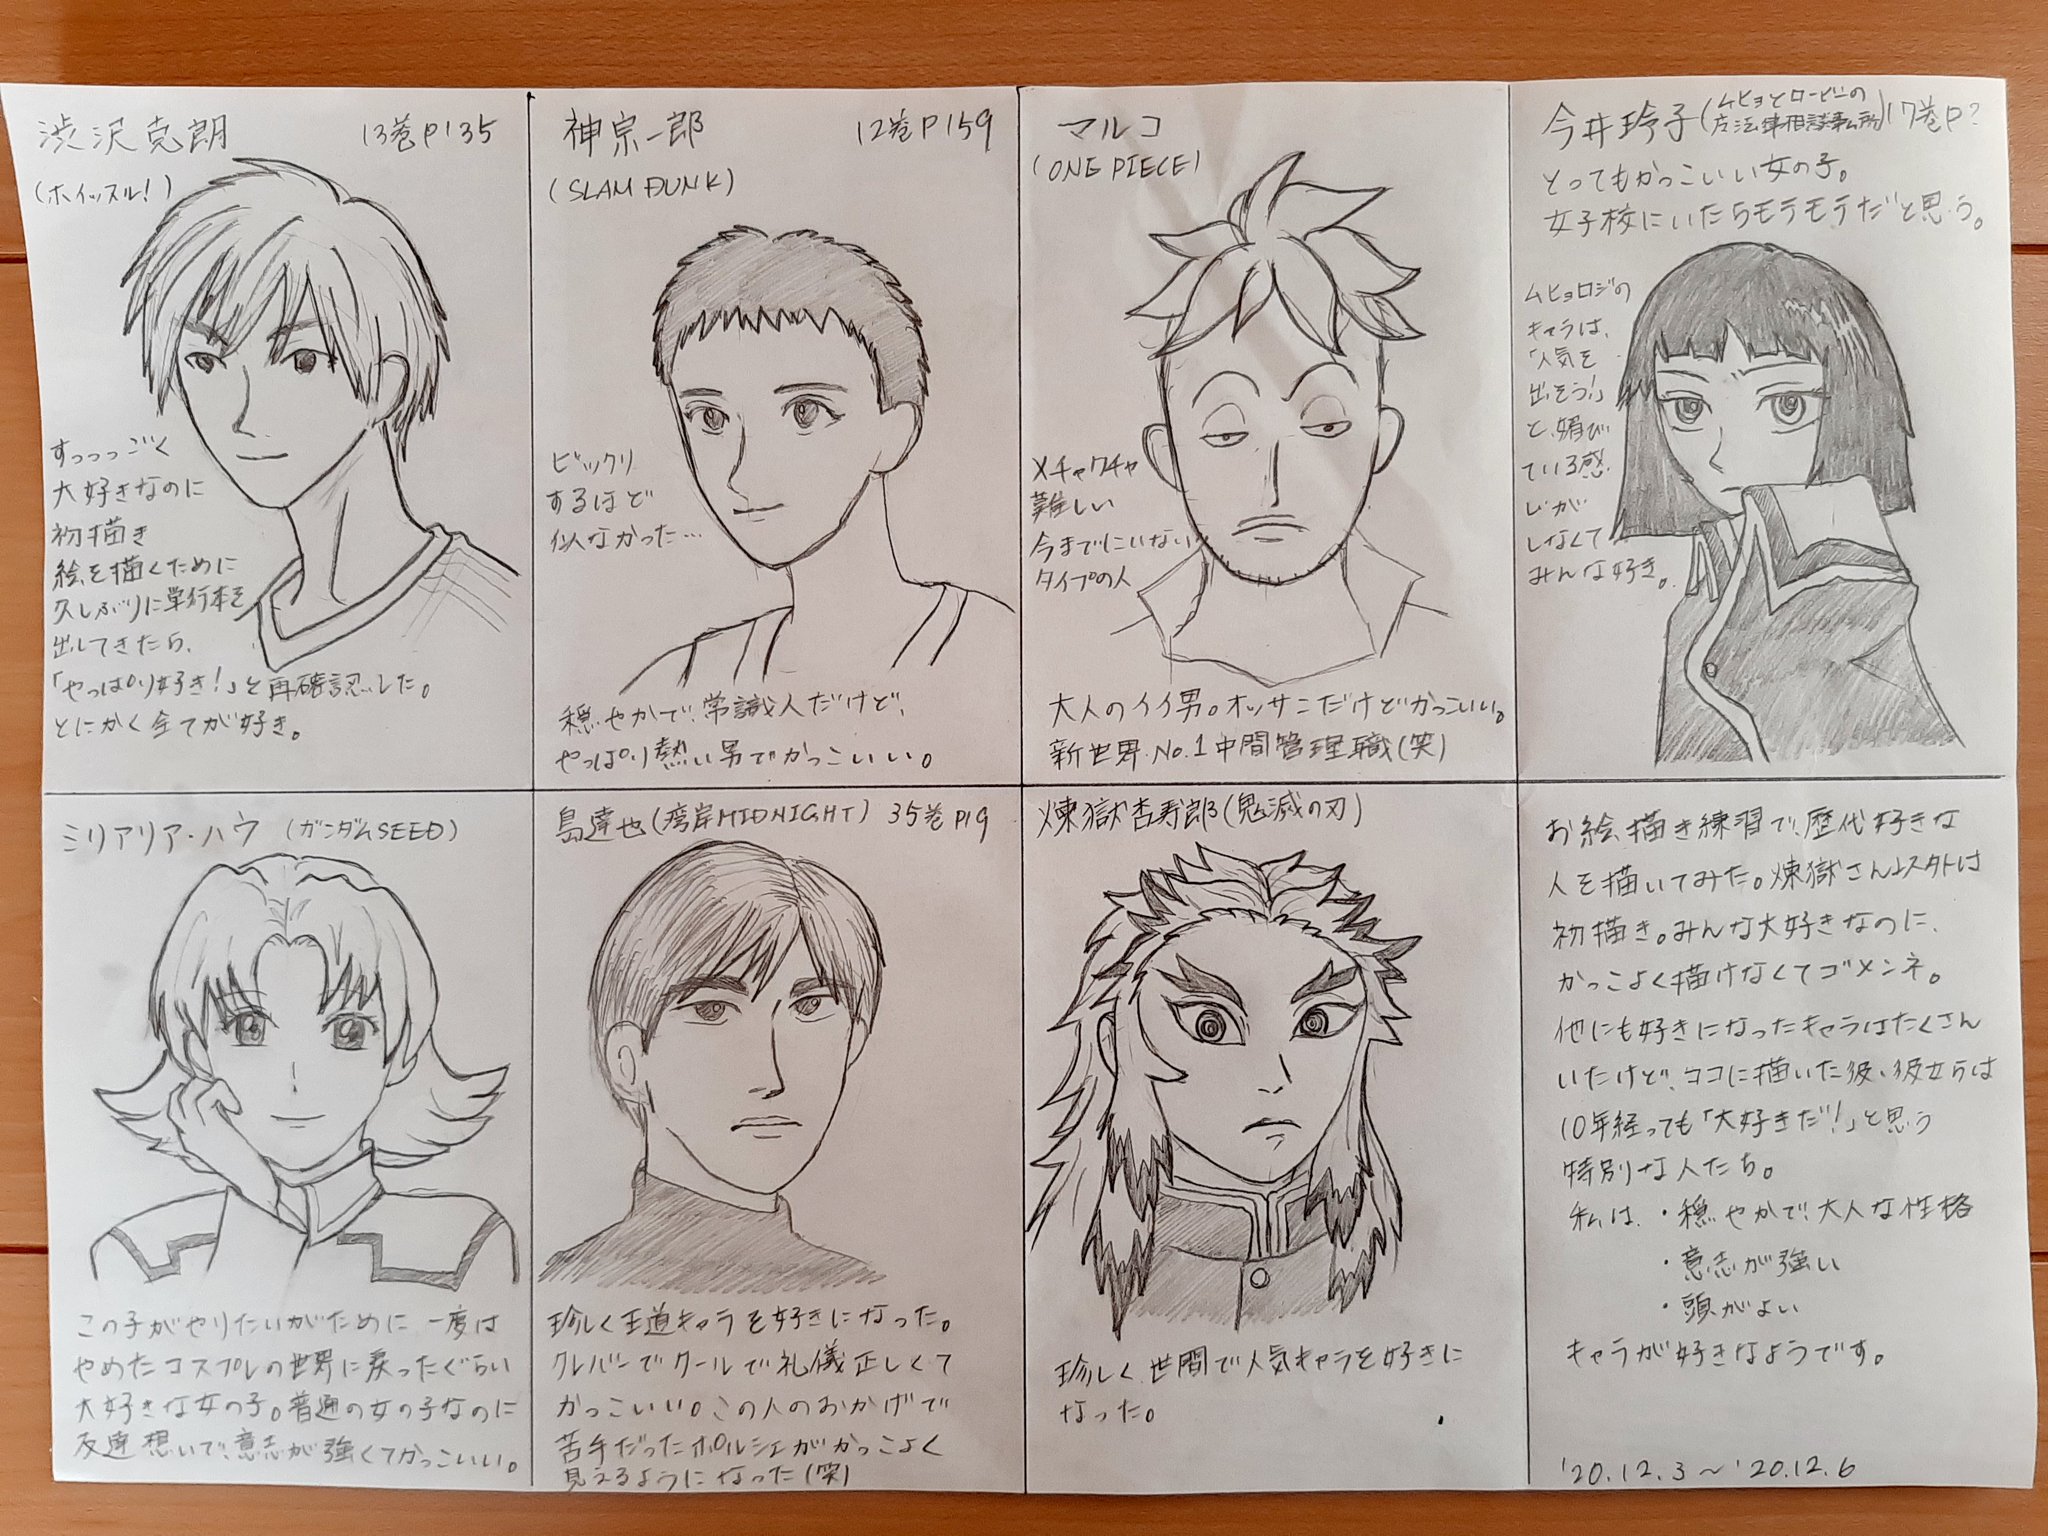 渋沢克朗 13巻P135
(ホイッスル!)
すっっっごく
大好きなのに
初描き
絵を描くために
久しぶりに単行本を
出してきたら、
「やっぱり好き!」と再確認した。
とにかく全てが好き。
神宗一郎 12巻P159
(SLAM DUNK)
ビックリ
するほど
似なかった…
穏やかで、常識人だけど、
やっぱり熱い男でかっこいい。
マルコ
(ONE PIECE)
メチャクチャ
難しい
今までにいない
タイプの人
大人のイイ男。オッサンだけどかっこいい。
新世界No.1中間管理職(笑)
今井玲子(ムヒョとロージーの
魔法律相談事務所)17巻P?
とってもかっこいい女の子。
女子校にいたらモテモテだと思う。
ムヒョロジの
キャラは、
「人気を
出そう!」
と、媚び
ている感
じが
しなくて
みんな好き。
ミリアリア・ハウ (ガンダムSEED)
この子がやりたいがために一度は
やめたコスプレの世界に戻ったぐらい
大好きな女の子。普通の女の子なのに
友達想いで、意志が強くてかっこいい。
島達也(湾岸MIDNIGHT) 35巻P19
珍しく王道キャラを好きになった。
クレバーでクールで礼儀正しくて
かっこいい。この人のおかげで
苦手だったポルシェがかっこよく
見えるようになった(笑)
煉獄杏寿郎(鬼滅の刃)
珍しく世間で人気キャラを好きに
なった。
お絵描き練習で、歴代好きな
人を描いてみた。煉獄さん以外は
初描き。みんな大好きなのに、
かっこよく描けなくてゴメンネ。
他にも好きになったキャラはたくさん
いたけど、ココに描いた彼、彼女らは
10年経っても「大好きだ!」と思う
特別な人たち。
私は、・穏やかで、大人な性格
・意志が強い
・頭がよい
キャラが好きなようです。
'20.12.3～'20.12.6